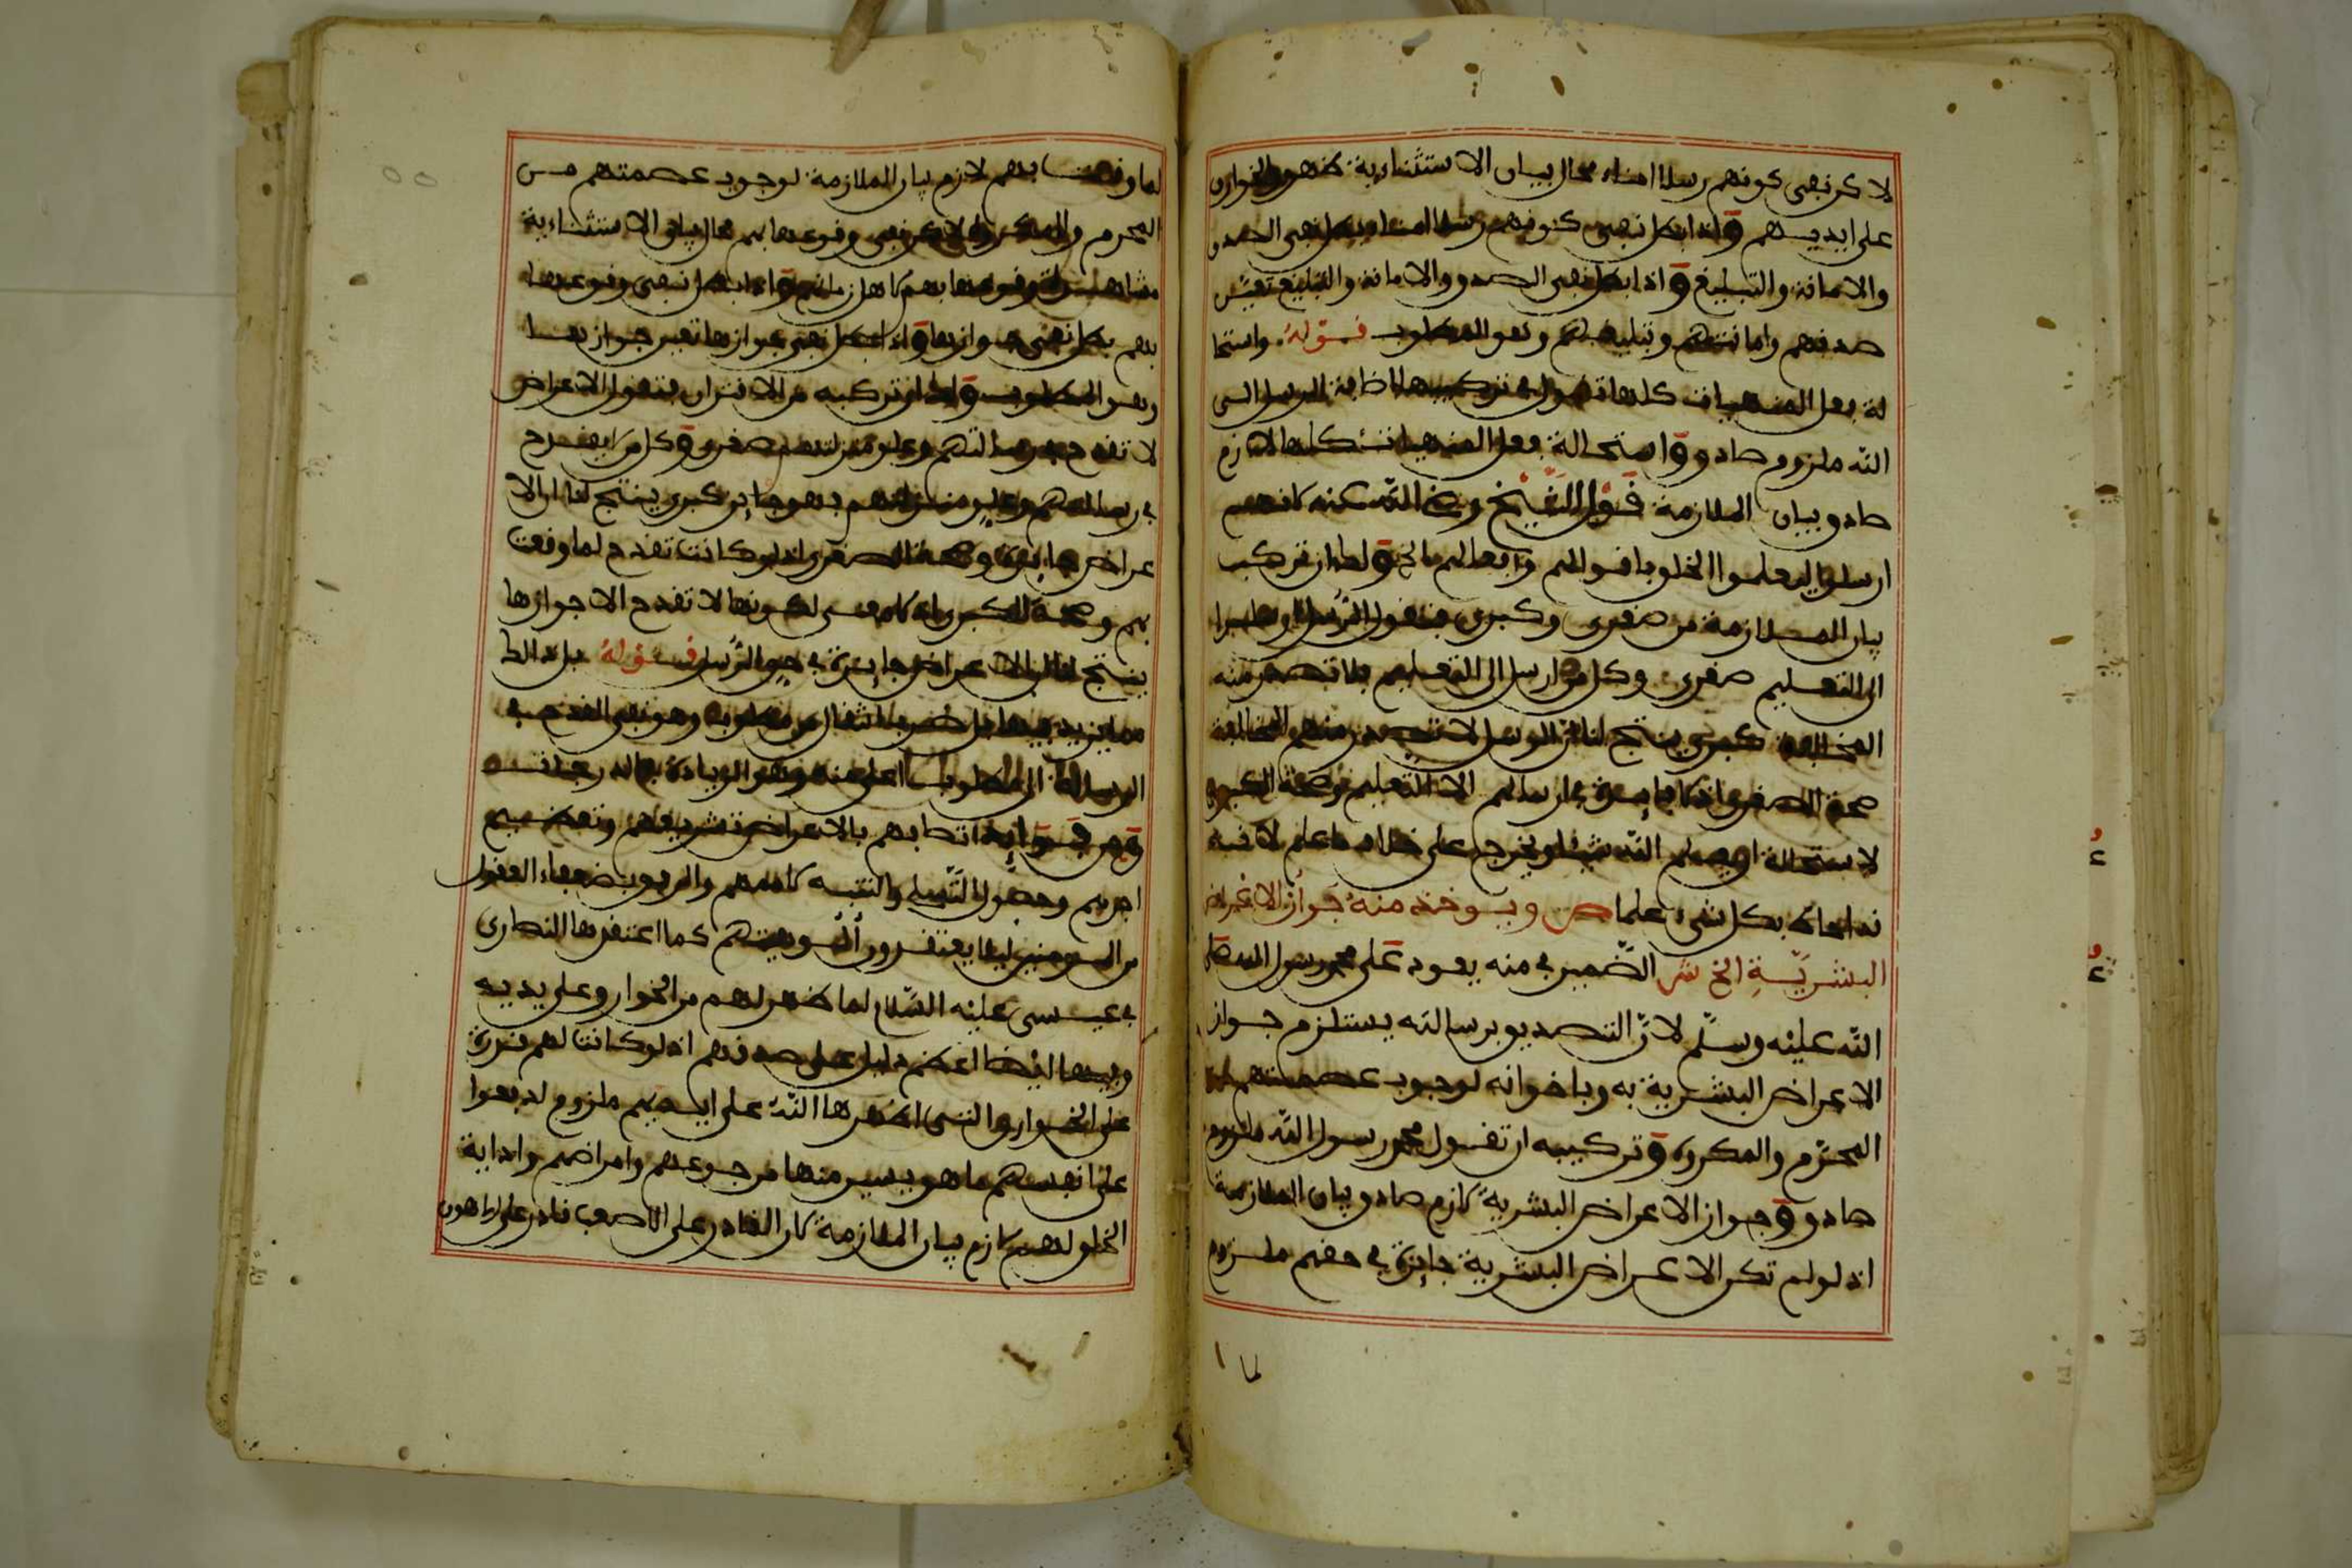 لاكن نفي كونهم رسلا امناء محال بيان الاستثنائية ظهور الخوارق
على ايديهم واذا بطل نفي كونهم رسلا امناء بطل نفي الصدق
والامانة والتبليغ واذا بطل نفي الصدق والامانة والتبليغ تعين
صدقهم وامانتهم وتبليغهم وهو المطلوب قوله واستحا
لة فعل المنهيات كلها تقول في تركيبها اضافة الرسل الى
الله ملزوم صادق واستحالة فعل المنهيات كلها لازم
صادق بيان الملازمة قول الشيخ رضي الله عنه لانهم
ارسلوا ليعلموا الخلق باقوالهم وافعالهم الخ ولك ان تركب
بيان الملازمة من صغرى وكبرى فتقول الرسل ارسلوا
الى التعليم صغرى وكل من ارسل الى التعليم فلا تصدر منه
المخالفة كبرى ينتج لنا ان الرسل لا تصدر منهم المخالفة
صحة الصغرى اذ لا فايدة في ارسالهم الا التعليم وصحة الكبرى
لاستحالة ان يعلم الله شيئا ويخرج على خلاف ما علم لاقبه
نه احاط بكل شيء علما ص ويوخذ منه جواز الاعراض
البشرية الخ ش الضمير في منه يعود على محمد رسول الله صلى
الله عليه وسلم لان التصديق برسالته يستلزم جواز
الاعراض البشرية به وباخوانه لوجوب عصمتهم من
المحرم والمكروه وتركيبه ان تقول محمد رسول الله ملزوم
صادق وجواز الاعراض البشرية لازم صادق بيان الملازمة
اذ لو لم تكن الاعراض البشرية جايزة في حقهم ملزوم
لما
لما وقعت بهم لازم بيان الملازمة لوجوب عصمتهم من
المحرم والمكروه لاكن نفي وقوعها بهم محال بيان الاستثنائية
مشاهدة وقوعها بهم لاهل زمانهم واذا بطل نفي وقوعها
بهم بطل نفي جوازها واذا بطل نفي جوازها تعين جوازها
وهو المطلوب ولك ان تركبه من الاقتران فتقول الاعراض
لا تقدح في رسالتهم وعلو منزلتهم صغرى وكل ما لا يقدح
في رسالتهم وعلو منزلتهم فهو جايز كبرى ينتج لنا ان الا
عراض جايزة وصحة الصغرى اذ لو كانت تقدح لما وقعت
بهم وصحة الكبرى اذ لا معنى لكونها لا تقدح الا جوازها
ينتج لنا ان الاعراض جايزة في حق الرسل قوله بل ذالك
مما يزيد فيها بل للاضراب انتقال من مطلوب وهو نفي القدح في
الرسالة الى مطلوب اعلى منه وهو الزيادة في الدرجات
ومن فوايد اتصافهم بالاعراض تشريفهم وتعظيم
اجرهم وحصول التسلي والتنبيه لاممهم والرفق بضعفاء العقول
من المومنين ليلا يعتقدون ألوهيتهم كما اعتقدها النصارى
في عيسى عليه السلام لما ظهر لهم من الخوارق على يديه
وفيها ايضا اعظم دليل على صدقهم اذ لو كانت لهم قدرة
على الخوارق التي اظهرها الله على ايديهم ملزوم لدفعوا
على انفسهم ما هو يسير منها من جوعهم وامراضهم واذاية
الخلق لهم لازم بيان الملازمة لان القادر على الاصعب قادر على ما هون